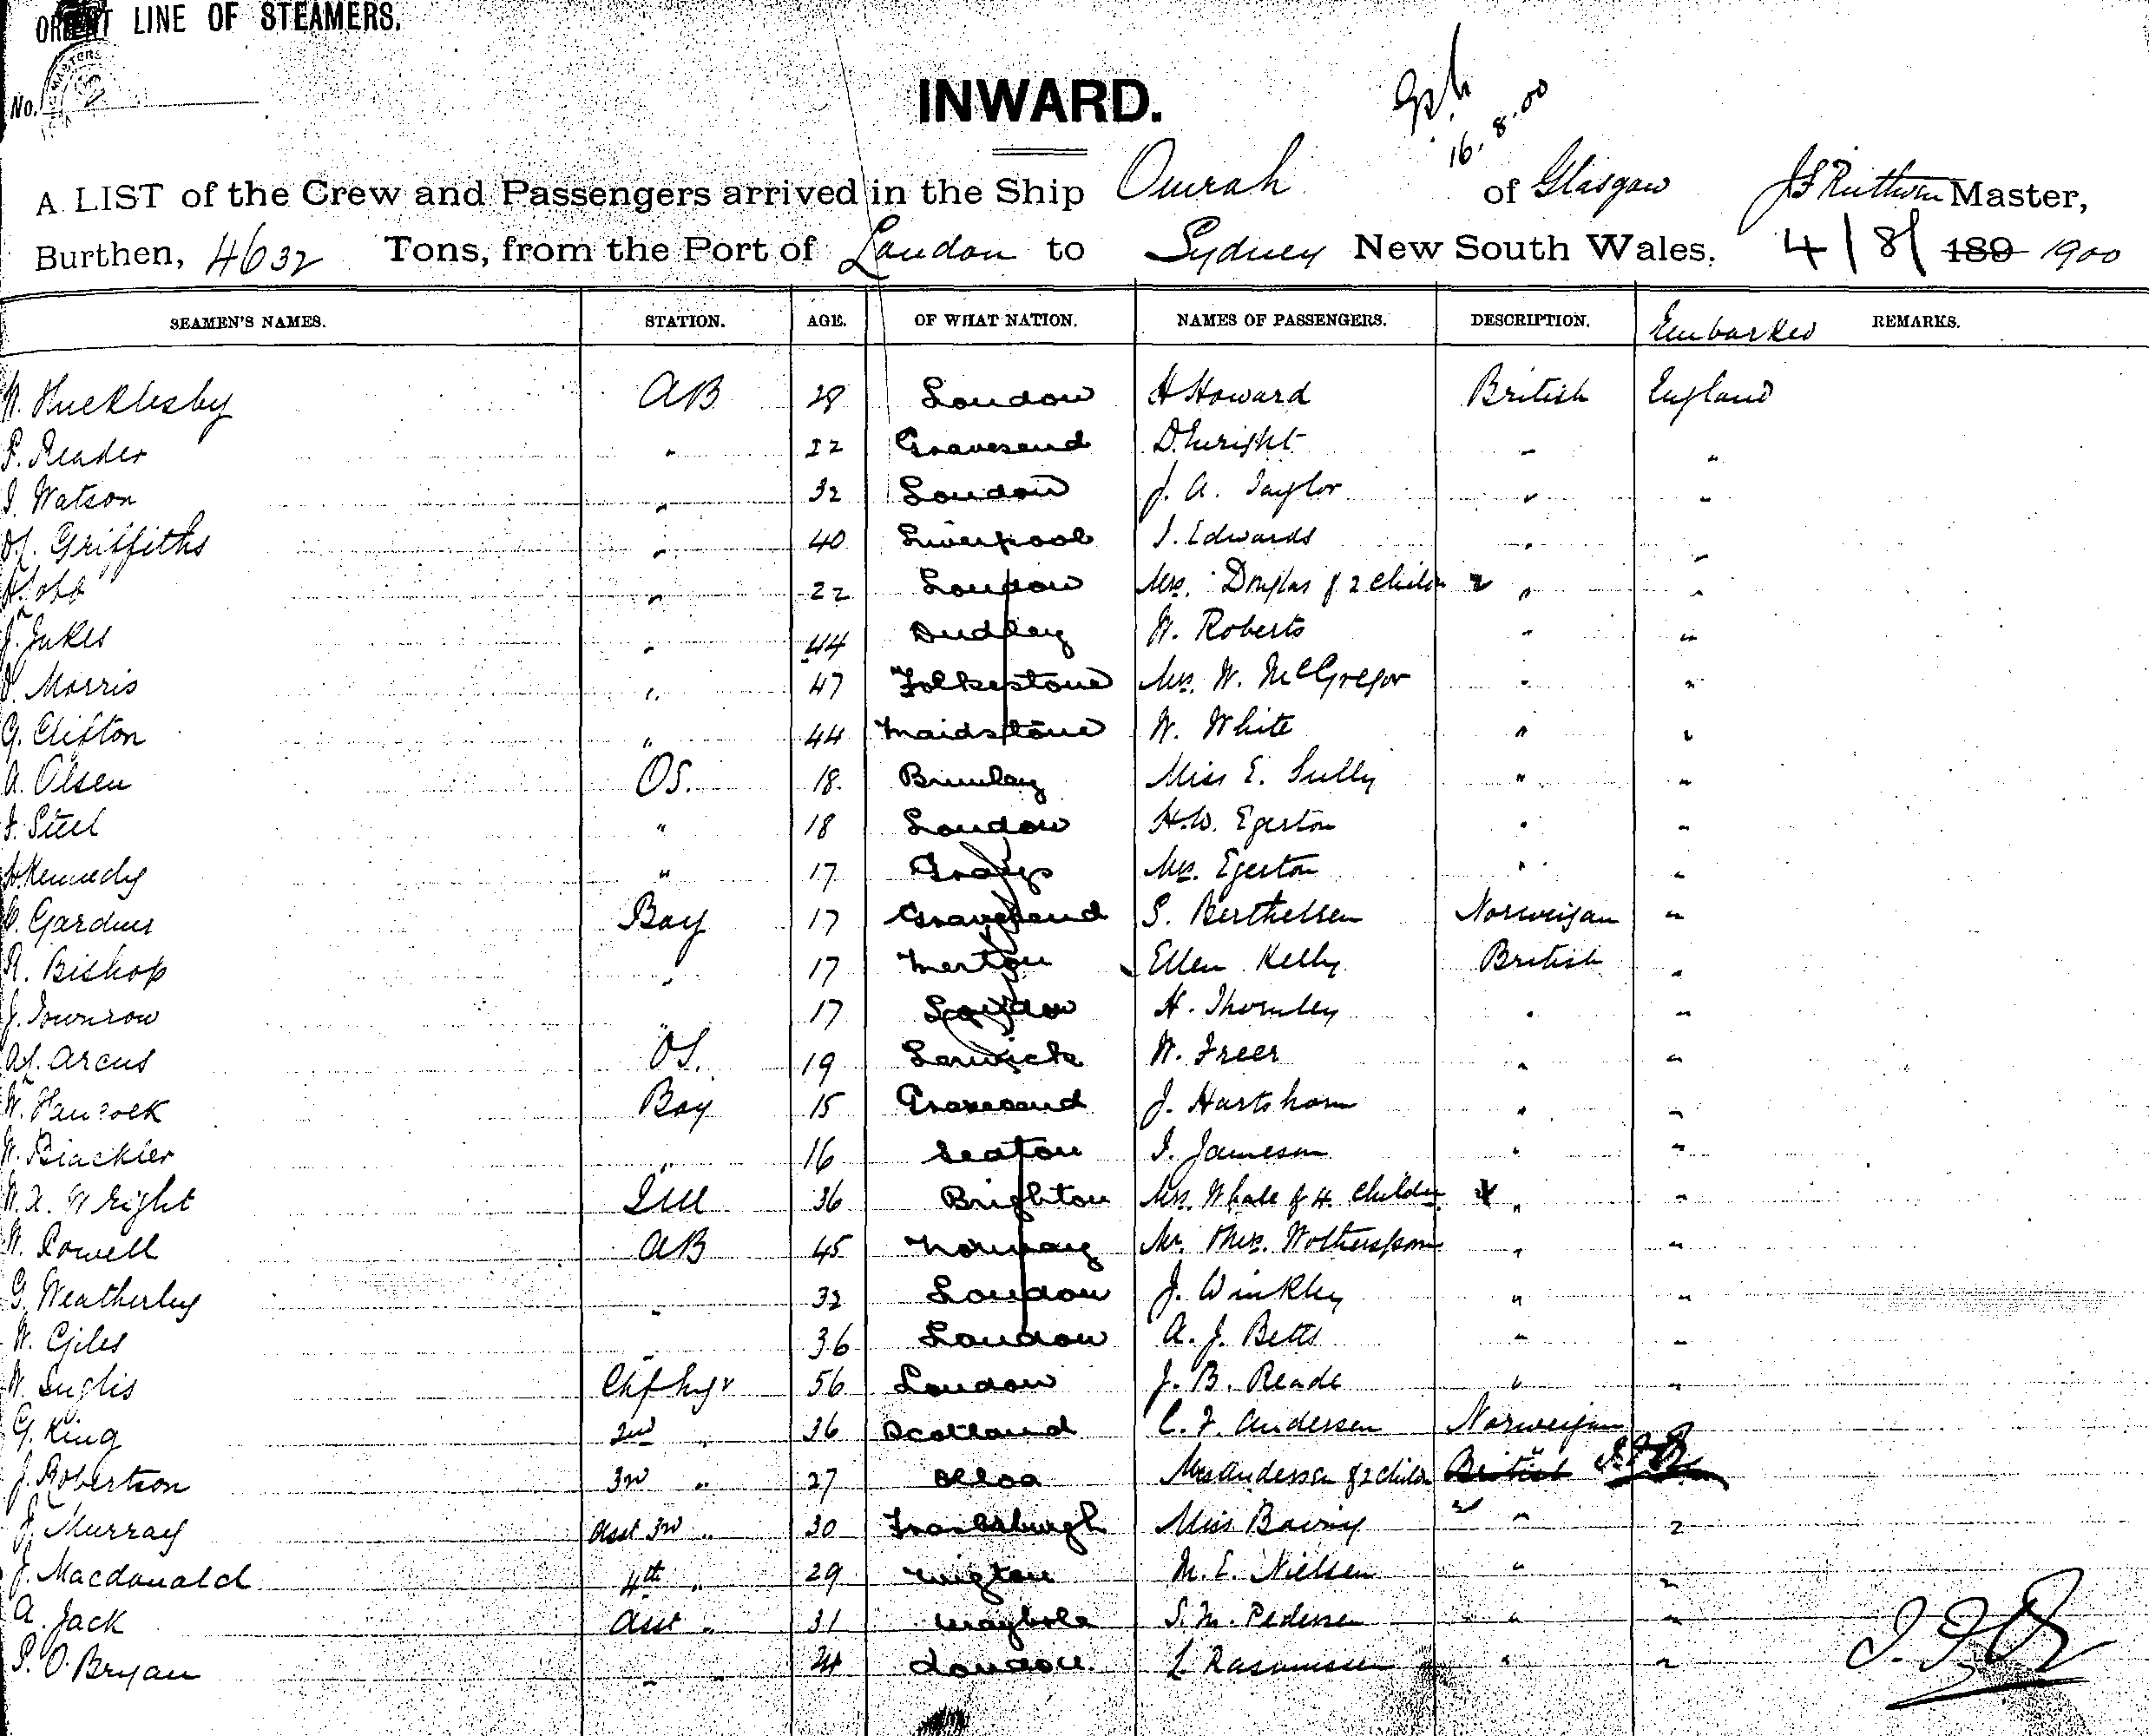 ORIENT LINE OF STEAMERS.
No.
INWARD.
16.8.00
A LIST of the Crew and Passengers arrived in the Ship Omrah of Glasgow J F Ruthven Master,
Burthen, 4632 Tons, from the Port of London to Sydney New South Wales. 4/8/ 189 1900
SEAMEN'S NAMES. STATION. AGE. OF WHAT NATION. NAMES OF PASSENGERS. DESCRIPTION. Embarked REMARKS.
W. Hucklesby AB 28 London H Howard British England
P. Reader " 22 Gravesend D. Wright " "
J. Watson " 32 London J. A. Taylor " "
Griffiths " 40 Liverpool J. Edwards " "
" 22 London Mrs. Douglas & 2 Childn " "
J. Jukes " 44 Dudley W. Roberts " "
Morris " 47 Folkestone Mrs. W. McGregor " "
G. Clifton " 44 Maidstone W. White " "
A. Olsen OS. 18 Miss E. Sully " "
Steel " 18 London H.W. Egerton " "
H Kennedy " 17 Grays Mrs. Egerton " "
Gardner Boy 17 Gravesend S. Berthelsen Norweigan "
R. Bishop " 17 Merton Ellen Kelly British "
J. Townrow " 17 London H. Thornley " "
Arcus OS. 19 Lerwick W. Freer " "
W. Hancock Boy 15 Gravesend J. Hartshorn " "
W. Blackler " 16 Seaton J. Jameson " "
Wright 36 Brighton Mrs. Whale & 4 Childn " "
W. Powell AB 45 Norway Mr. Mrs. Wotherspoon " "
G. Weatherley " 32 London J. Winkley " "
W. Giles " 36 London A. J. Betts " "
W. Inglis Chf Engr 56 London J. B. Reade " "
G. King 2nd " 36 Scotland C. F. Andersen Norweigan
J. Robertson 3rd " 27 Alloa Mrs Andersen & 2 Childn British "
J. Murray Asst 3rd " 30 Fraserburgh Miss " "
J. Macdonald 4th " 29 Wigton M. E. Nielsen " "
A. Jack Asst " 31 Maybole S. M. Pedersen " "
P. O'Bryan " " 24 London L Rasmussen " "